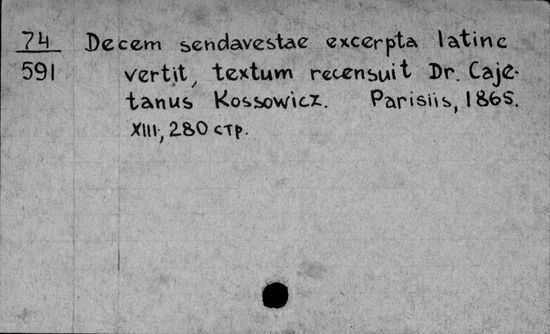 74 Decem sendavestae excerpta latine
591 vertit, textum recensuit Dr. Caje-
tanus Kossowicz. Parisiis, 1865.
XIII, 280 стр.